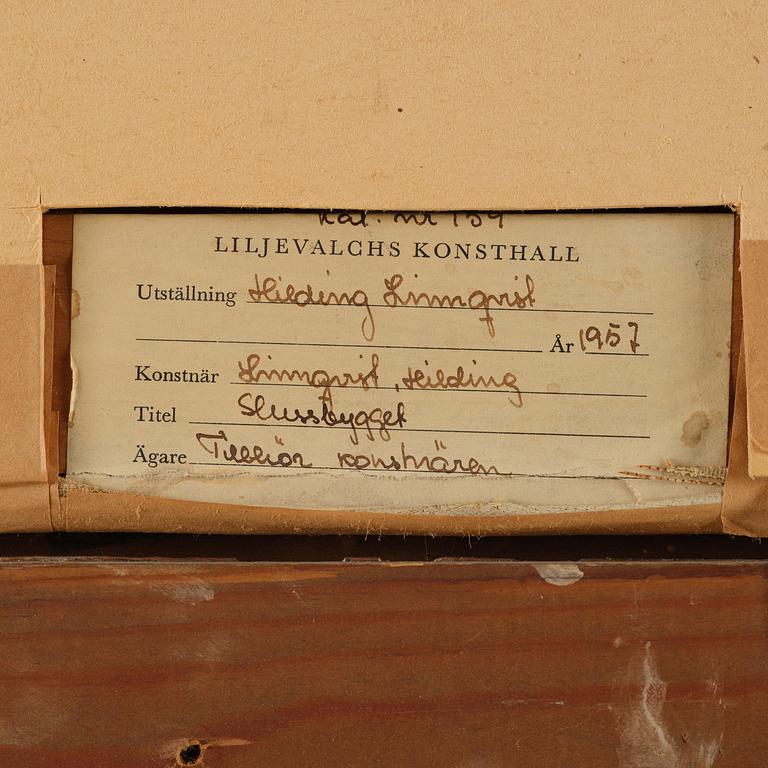 Kat. nr 159
LILJEVALCHS KONSTHALL
Utställning Hilding Linnqvist
År 1957
Konstnär Linnqvist, Hilding
Titel Slussbygget
Ägare Tillhör konstnären